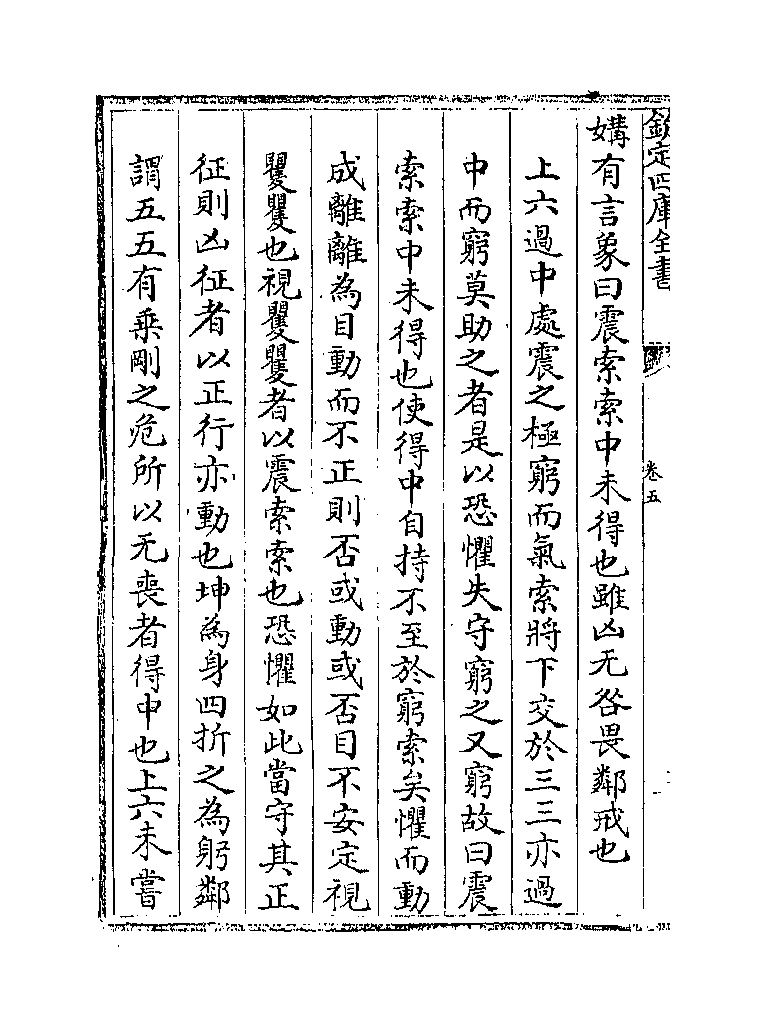 欽定四庫全書
卷五
媾有言象曰震索索中未得也雖凶无咎畏鄰戒也
上六過中處震之極窮而氣索將下交於三三亦過
中而窮莫助之者是以恐懼失守窮之又窮故曰震
索索中未得也使得中自持不至於窮索矣懼而動
成離離為目動而不正則否或動或否目不安定視
矍矍也視矍矍者以震索索也恐懼如此當守其正
征則凶征者以正行亦動也坤為身四折之為躬鄰
謂五五有乘剛之危所以无喪者得中也上六未嘗